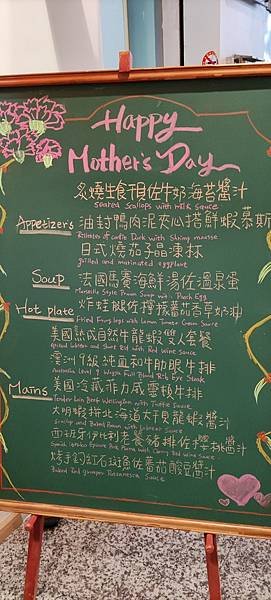 Happy
Mother's Day
炙燒生食干貝佐牛奶海苔醬汁
Seared Scallops with Milk Sauce
Appetizers 油封鴨肉泥夾心搭鮮蝦慕斯
Rillettes of confit Duck with Shrimp mousse
日式燒茄晶凍林
grilled and marinated eggplant
Soup 法國馬賽海鮮湯佐溫泉蛋
Marseille Style Prawn Soup with Poach Egg
Hot plate 炸蛙腿佐檸檬蕃茄芳芳奶油
Fried Frog legs with Lemon Tomato Cream Sauce
美國熟成自然牛龍蝦雙人套餐
Grilled Lobster and Short Rib with Red Wine Sauce
澳洲9級純血和牛肋眼牛排
Australia Level 9 Wagyu Full Blood Rib Eye Steak
Mains 美國冷藏菲力威靈頓牛排
Tender Loin Beef Wellington with Truffle Sauce
大明蝦拼北海道大干貝龍蝦醬汁
Scallop and Baked Prawn with Lobster sauce
西班牙伊比利老饕豬排佐櫻桃醬汁
Spanish Iberico Pork with Cherry Red Wine sauce
烤手釣紅石斑魚佐蕃茄酸豆醬汁
Baked Red grouper Sauce